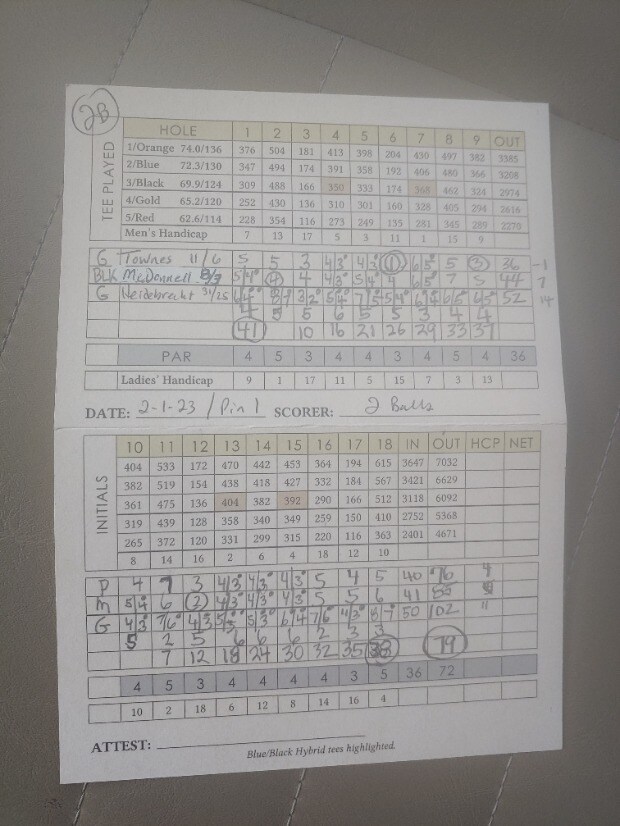 2B
HOLE 1 2 3 4 5 6 7 8 9 OUT
TEE PLAYED
1/Orange 74.0/136 376 504 181 413 398 204 430 497 382 3385
2/Blue 72.3/130 347 494 174 391 358 192 406 480 366 3208
3/Black 69.9/124 309 488 166 350 333 174 368 462 324 2974
4/Gold 65.2/120 252 430 136 310 301 160 328 405 294 2616
5/Red 62.6/114 228 354 116 273 249 135 281 365 289 2279
Men's Handicap 7 13 17 5 3 11 1 15 9
G Townes 11/6 5 5 3 4/3 4/3 6/5 5 3 36 -1
BLK McDonnell 5/4 4 4 4/3 5/4 4 6/5 7 5 44 7
G Heidebrecht 31/25 3/2 5/4 7/5 5/4 6/5 6/5 52 14
4 5 5 6 5 5 3 4 4
41 10 16 21 26 29 33 37
PAR 4 5 3 4 4 3 4 5 4 36
Ladies' Handicap 9 1 17 11 5 15 7 3 13
DATE: 2-1-23 / Pin 1 SCORER: 2 Balls
INITIALS
10 11 12 13 14 15 16 17 18 IN OUT HCP NET
404 533 172 470 442 453 364 194 615 3647 7032
382 519 154 438 418 427 332 184 567 3421 6629
361 475 136 404 382 392 290 166 512 3118 6092
319 439 128 358 340 349 259 150 410 2752 5368
265 372 120 331 299 315 220 116 363 2401 4671
8 14 16 2 6 4 18 12 10
4 7 3 4/3 4/3 4/3 5 4 5 40 76 4
M 5/4 6 2 4/3 4/3 4/3 5 5 6 41 85
G 4/3 7/6 4/3 5/3 5/3 6/4 7/6 4/3 8/7 50 102 11
5 2 5 6 6 6 2 3 3
7 12 18 24 30 32 35 38 79
4 5 3 4 4 4 4 3 5 36 72
10 2 18 6 12 8 14 16 4
ATTEST:
Blue/Black Hybrid tees highlighted.